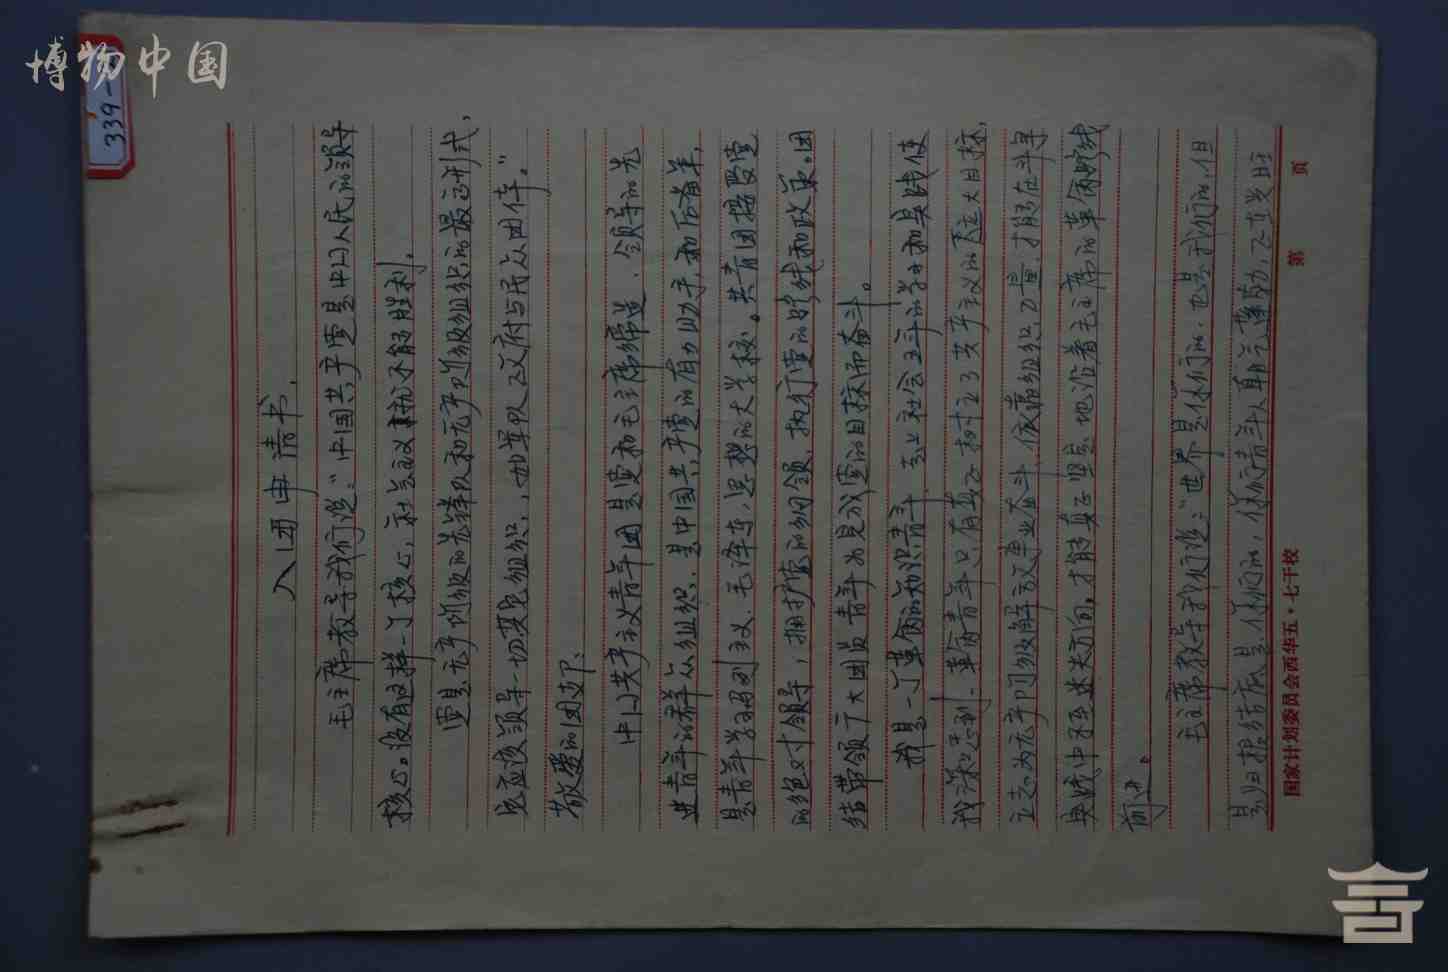 博物中国
339-
入团申请书.
毛主席教导我们说:"中国共产党是中国人民的领导
核心。没有这样一个核心,社会主义事业就不能胜利。
党是无产阶级的先锋队和无产阶级组织的最高形式,
它应该领导一切其它组织,如军队政府与民众团体。"
敬爱的团支部:
中国共产主义青年团是党和毛主席缔造、领导的先
进青年的群众组织,是中国共产党的有力助手和后备军,
是青年学习马列主义、毛泽东思想的大学校。共青团接受党
的绝对领导,拥护党的纲领,执行党的路线和政策。团
结带领广大团员青年为完成党的目标而奋斗。
我是一个革命的知识青年,社会的学习和实践使
我深深感到:革命青年只有真正树立了共产主义的远大目标,
立志为无产阶级解放事业奋斗,依靠组织力量,才能在斗争
实践中不迷失方向,才能真正坚定地沿着毛主席的革命路线
前进。
毛主席教导我们说:"世界是你们的,也是我们的,但
是归根结底是你们的,你们青年人朝气蓬勃,正在兴旺
国家计划委员会西华五·七干校
第 页